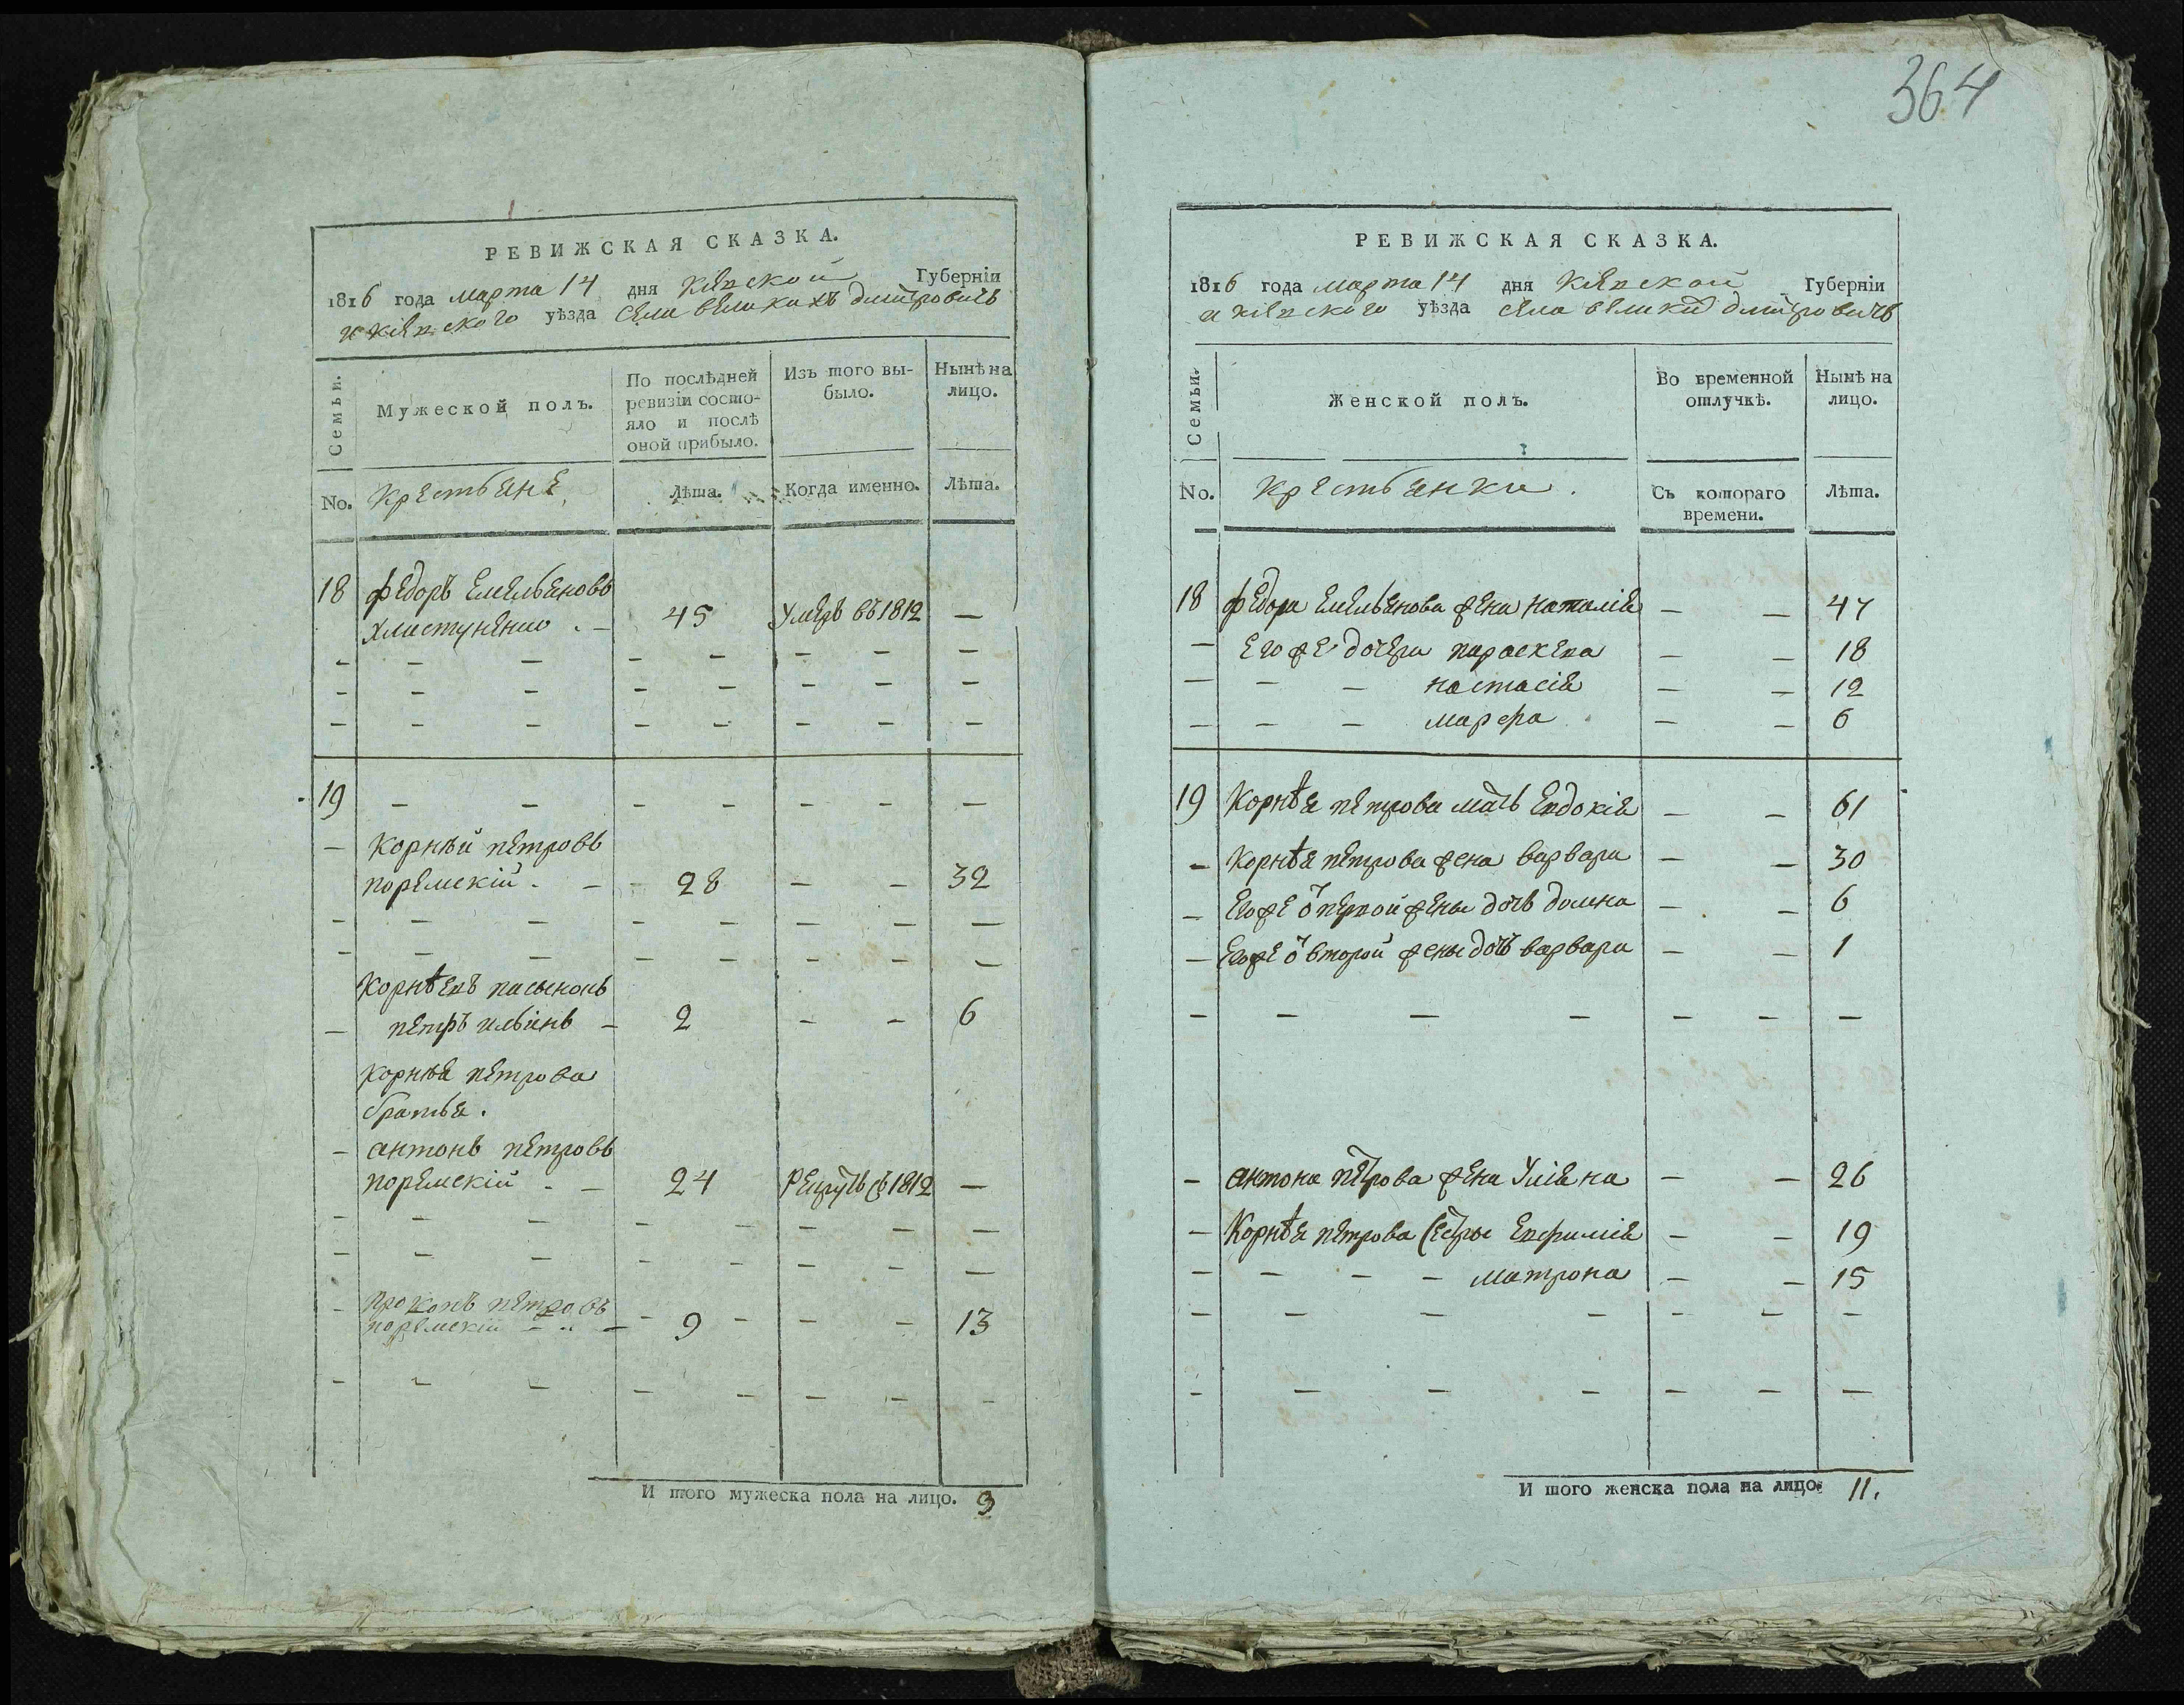 364
РЕВИЖСКАЯ СКАЗКА.
1816 года марта 14 дня киевской Губерніи
и киевского уѣзда села великихъ дмитровичъ
Семьи.
Мужеской полъ.
По послѣдней
ревизіи состо-
яло и послѣ
оной прибыло.
Изъ того вы-
было.
Нынѣ на
лицо.
No.
крестьяне
Лѣта.
Когда именно.
Лѣта.
18 федоръ емельяновъ
45 Умеръ въ 1812 —
19
корнѣй петровъ
поремскій 28 — — 32
корнѣевъ пасынокъ
петръ ильинъ 2 — — 6
корнѣя петрова
братья.
антонъ петровъ
поремскій 24 рекрутъ съ 1812 —
прокопъ петровъ
поремскій 9 — — 13
И того мужеска пола на лицо. 3
РЕВИЖСКАЯ СКАЗКА.
1816 года марта 14 дня киевской Губерніи
и киевского уѣзда села великих дмитровичъ
Семьи.
Женской полъ.
Во временной
отлучкѣ.
Нынѣ на
лицо.
No.
крестьянки.
Съ котораго
времени.
Лѣта.
18 федора емельянова жена наталія — — 47
его же дочери параскева — — 18
настасія — — 12
марфа — — 6
19 Корнѣя петрова мать евдокія — — 61
Корнѣя петрова жена варвара — — 30
Его же от первой жены дочь домна — — 6
Его же от второй жены дочь варвара — — 1
антона петрова жена Уліяна — — 26
Корнѣя петрова сестры евфимія — — 19
матрона — — 15
И того женска пола на лицо. 11.